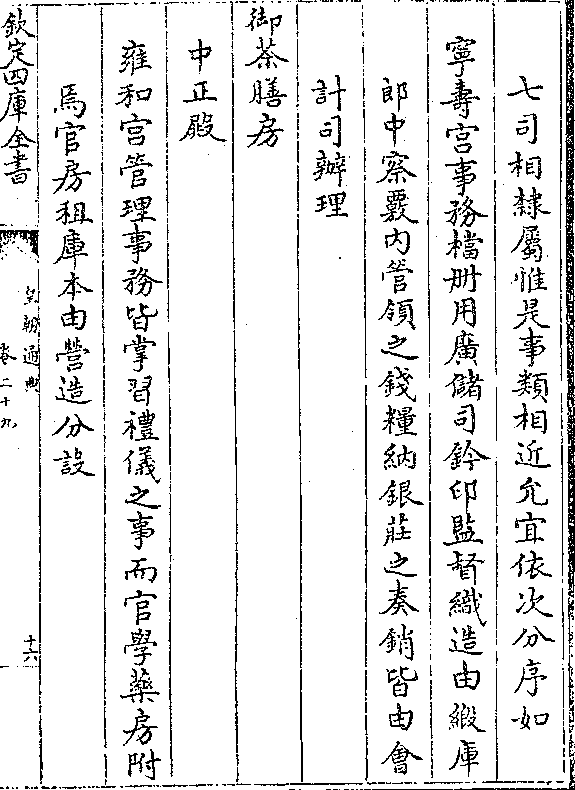 七司相隸屬惟是事類相近允宜依次分序如
寧壽宮事務檔册用廣儲司鈐印監督織造由緞庫
郎中察覈内管領之錢糧納銀莊之奏銷皆由會
計司辦理
御茶膳房
中正殿
雍和宮管理事務皆掌習禮儀之事而官學藥房附
焉官房租庫本由營造分設
欽定四庫全書
皇朝通典
卷二十九
十六